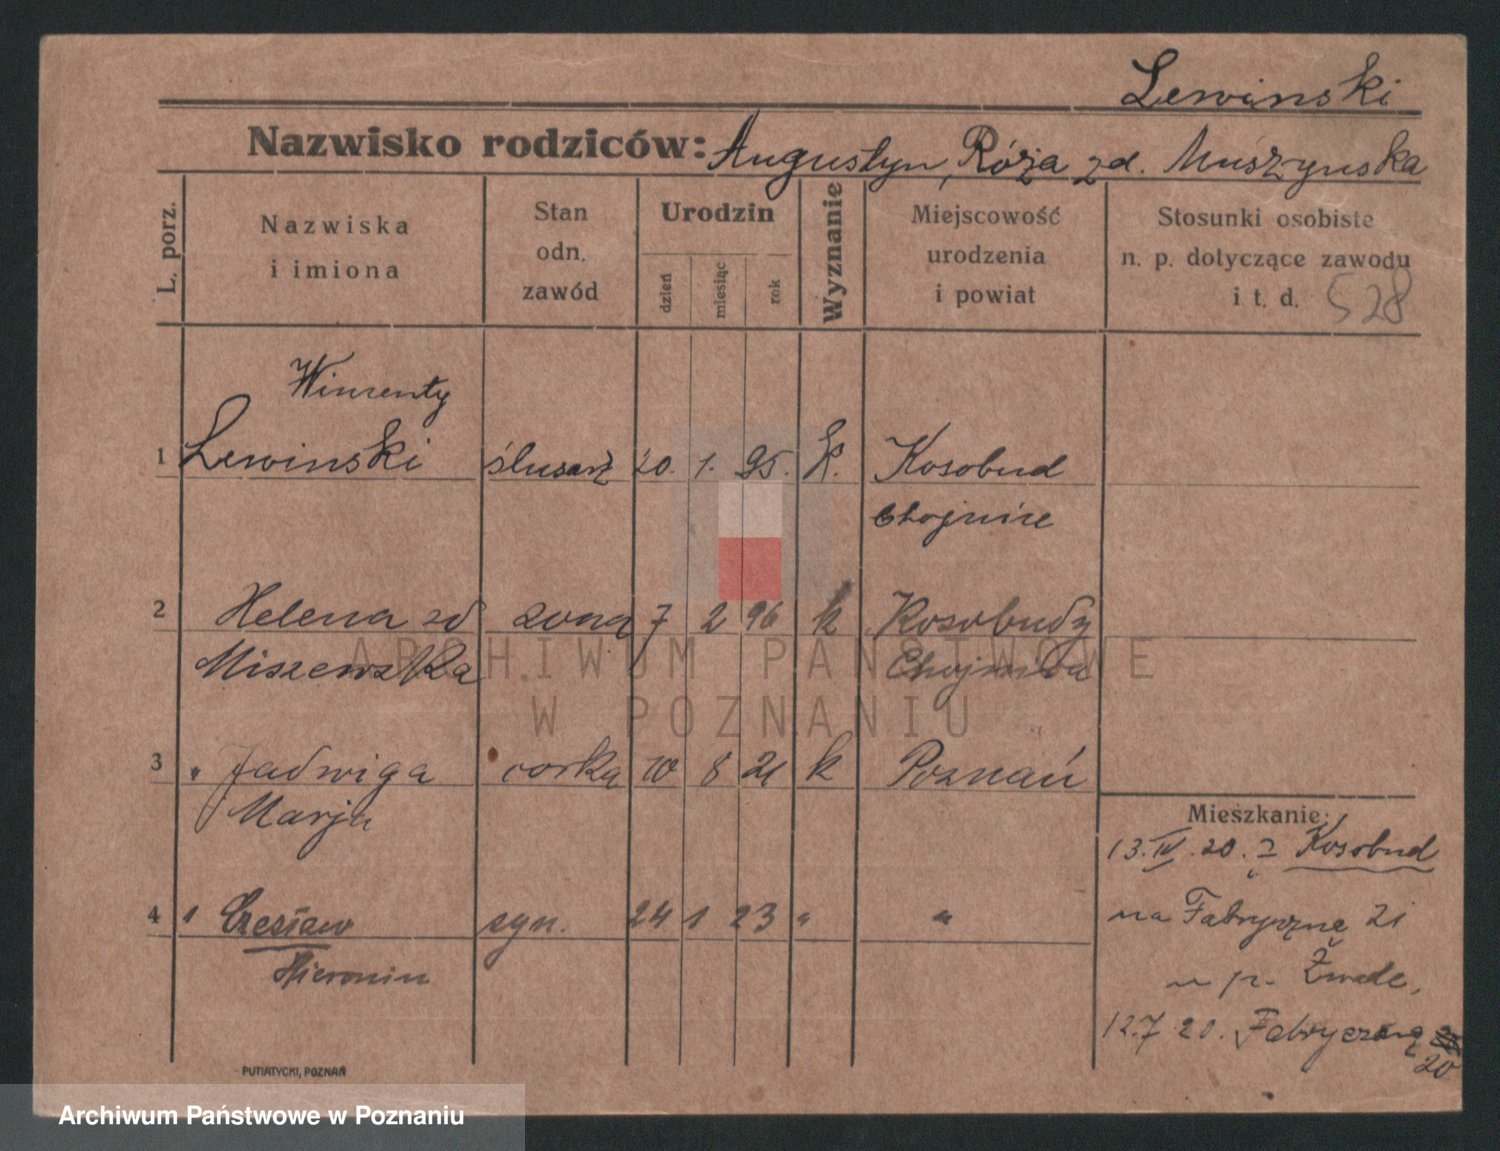 Lewinski
Nazwisko rodziców: Augustyn, Róża zd. Muszynska
L. porz.
Nazwiska i imiona
Stan odn. zawód
Urodzin
dzień miesiąc rok
Wyznanie
Miejscowość urodzenia i powiat
Stosunki osobiste n. p. dotyczące zawodu i t. d. 528
Winzenty
1 Lewinski ślusarz 20. 1. 95. k. Kosobud
Chojnice
2 Helena zd żona 7 2 96 k Kosobudy
Miszewska
3 " Jadwiga corka 10 8 21 k Poznań
Marja
4 " Czesław syn. 24 1 23 " "
Hieronim
Mieszkanie:
13. IV. 20. z Kosobud
na Fabryczną 21
u p.
12.7 20. Fabryczną
20
PUTIATYCKI, POZNAŃ
ARCHIWUM PAŃSTWOWE
W POZNANIU
Archiwum Państwowe w Poznaniu